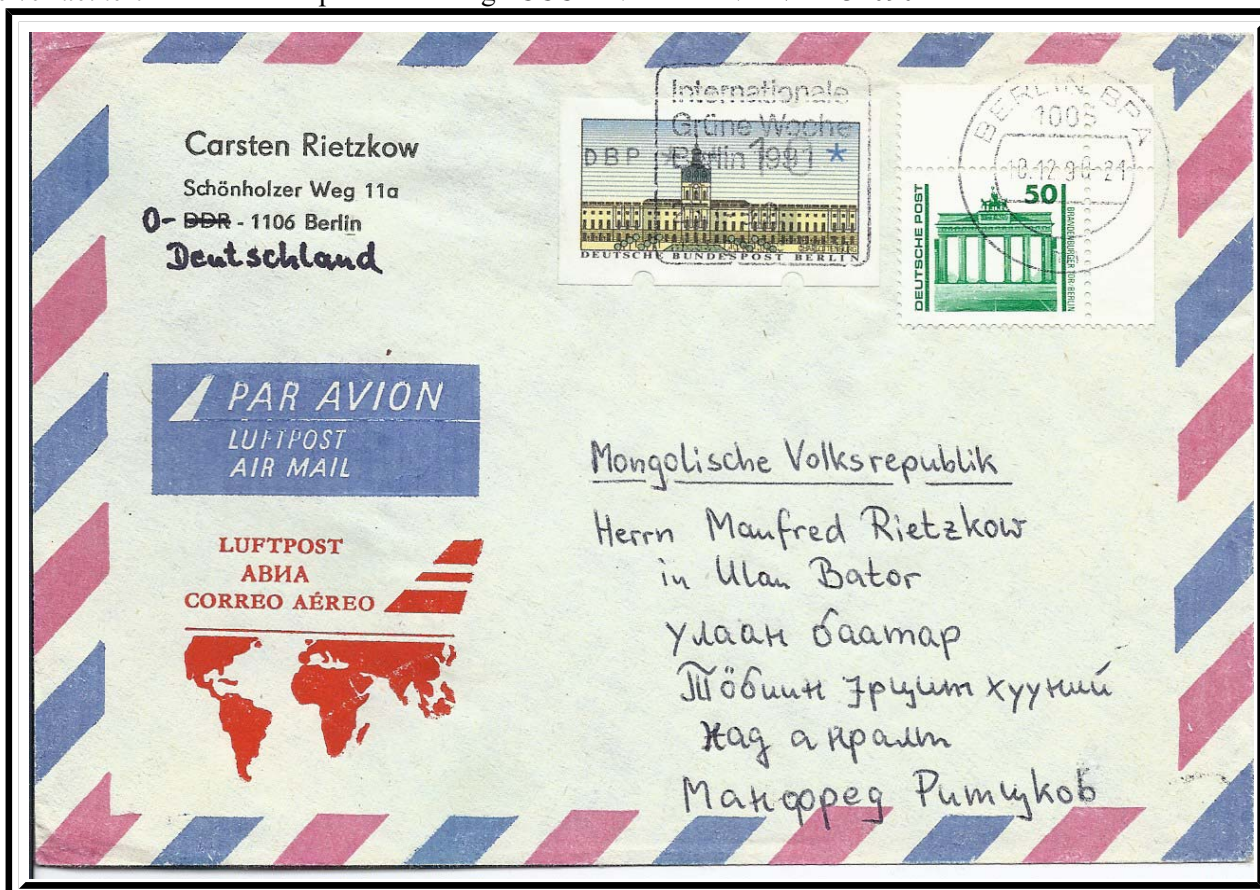 Carsten Rietzkow
Schönholzer Weg 11a
O- DDR - 1106 Berlin
Deutschland
Internationale
Grüne Woche
Berlin 1991 *
DBP
10
DEUTSCHE BUNDESPOST BERLIN
BERLIN BPA
1005
-21
50
DEUTSCHE POST
BRANDENBURGER TOR · BERLIN
PAR AVION
LUFTPOST
AIR MAIL
LUFTPOST
АВИА
CORREO AÉREO
Mongolische Volksrepublik
Herrn Manfred Rietzkow
in Ulan Bator
улаан баатар
хүүний
Манфред Ритцков